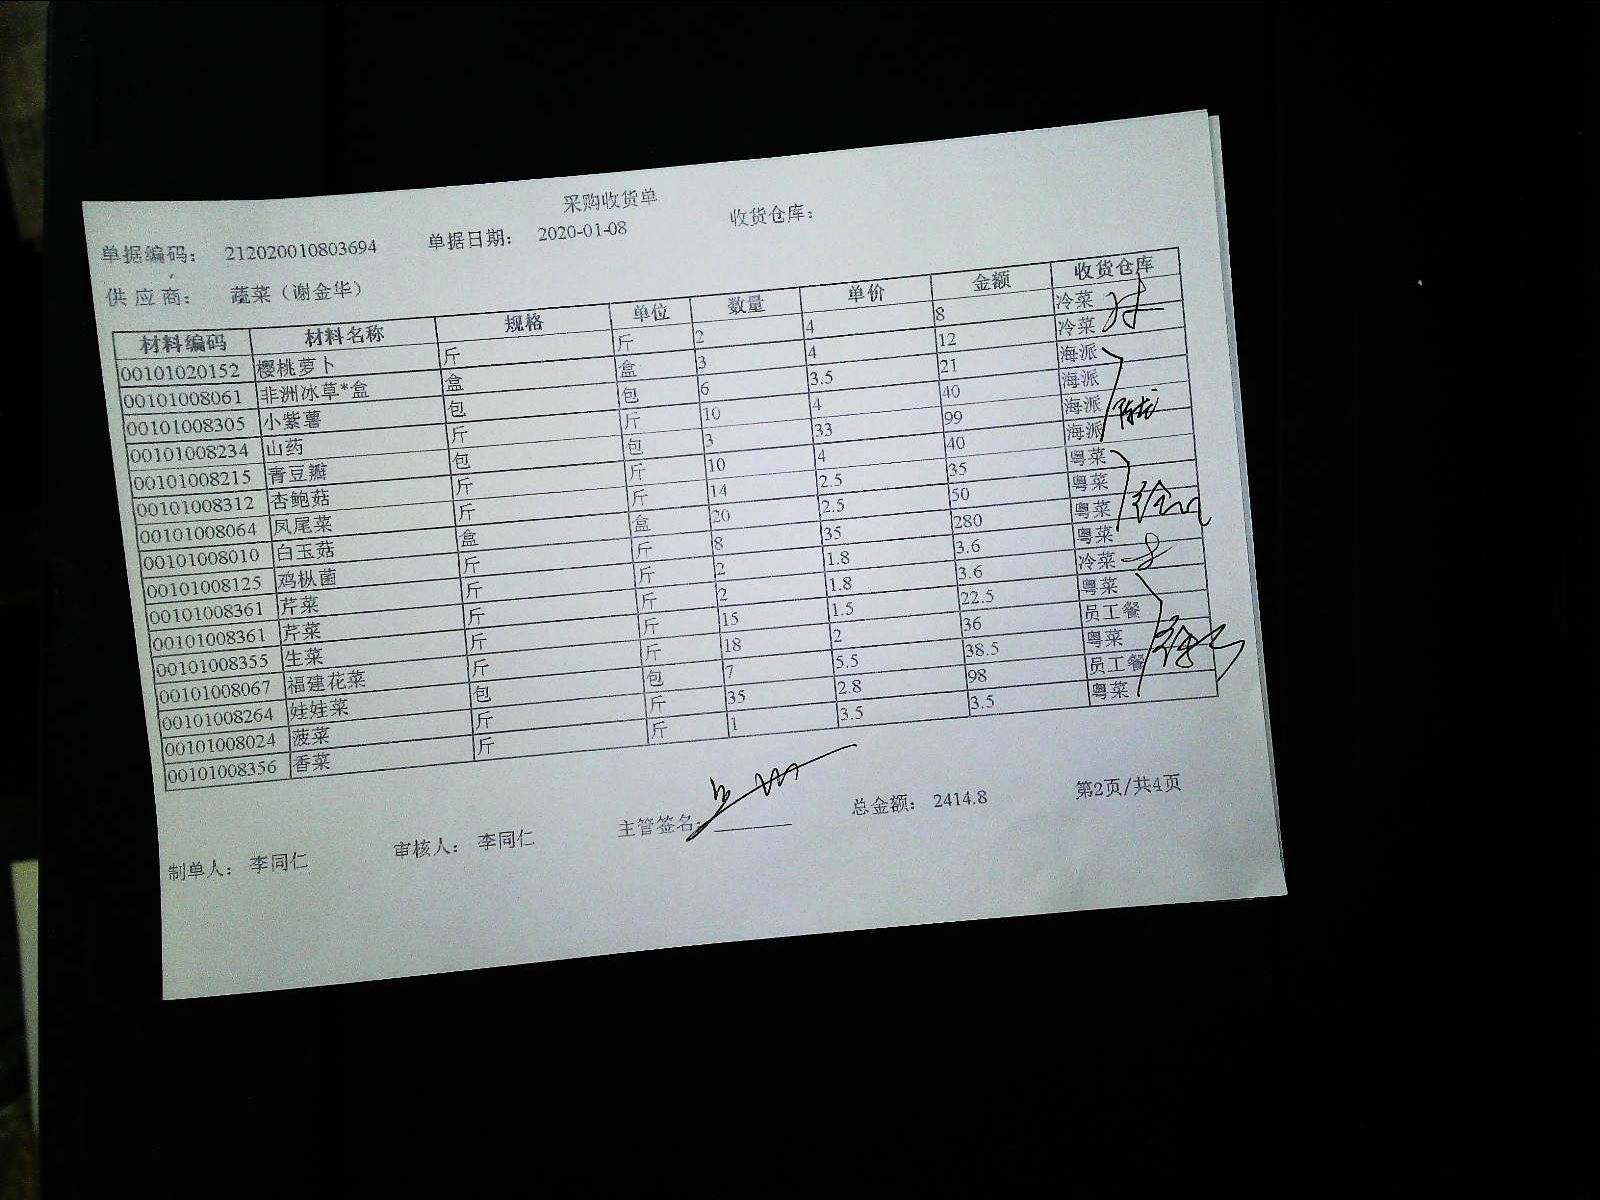 采购收货单
单据编码： 212020010803694 单据日期： 2020-01-08 收货仓库：
供应商： 蔬菜（谢金华）
材料编码 材料名称 规格 单位 数量 单价 金额 收货仓库
00101020152 樱桃萝卜 斤 斤 2 4 8 冷菜
00101008061 非洲冰草*盒 盒 盒 3 4 12 冷菜
00101008305 小紫薯 包 包 6 3.5 21 海派
00101008234 山药 斤 斤 10 4 40 海派
00101008215 青豆瓣 包 包 3 33 99 海派
00101008312 杏鲍菇 斤 斤 10 4 40 海派
00101008064 凤尾菜 斤 斤 14 2.5 35 粤菜
00101008010 白玉菇 盒 盒 20 2.5 50 粤菜
00101008125 鸡枞菌 斤 斤 8 35 280 粤菜
00101008361 芹菜 斤 斤 2 1.8 3.6 粤菜
00101008361 芹菜 斤 斤 2 1.8 3.6 冷菜
00101008355 生菜 斤 斤 15 1.5 22.5 粤菜
00101008067 福建花菜 斤 斤 18 2 36 员工餐
00101008264 娃娃菜 包 包 7 5.5 38.5 粤菜
00101008024 菠菜 斤 斤 35 2.8 98 员工餐
00101008356 香菜 斤 斤 1 3.5 3.5 粤菜
制单人： 李同仁 审核人： 李同仁 主管签名： 总金额： 2414.8 第2页/共4页